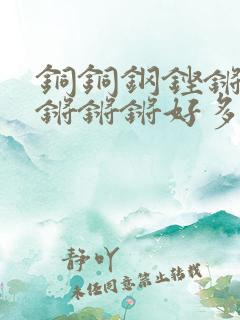 銅銅鋼鏗鏘
鏘鏘鏘好多
靜吖
未经同意禁止转载